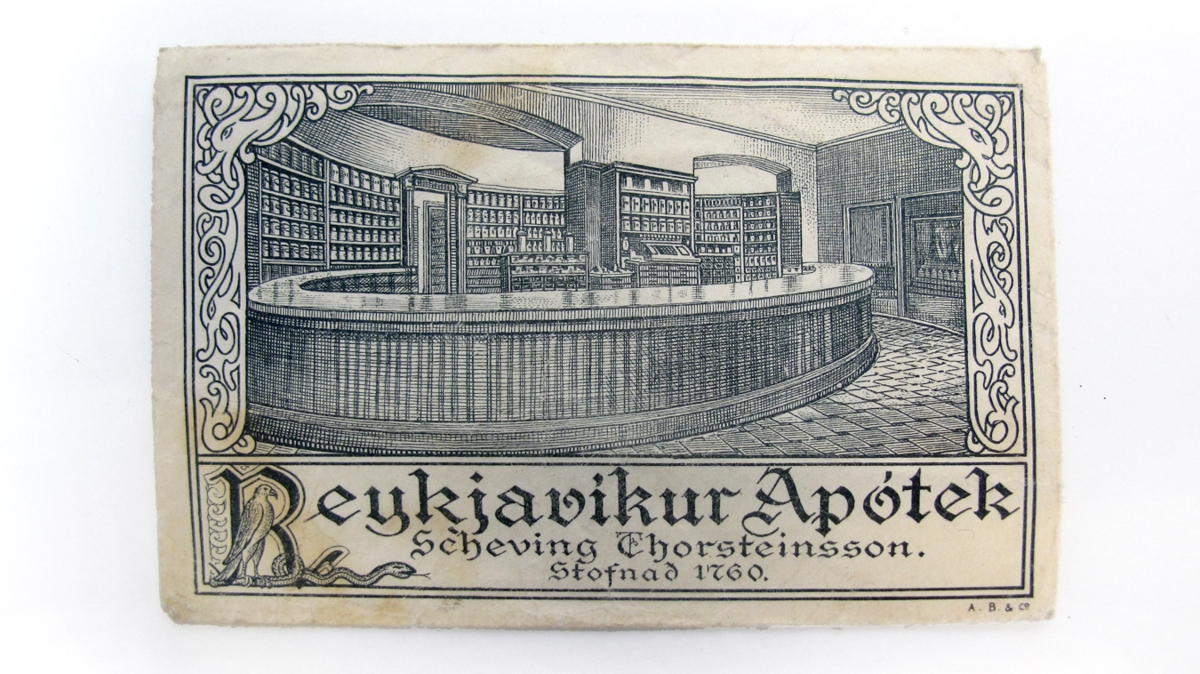 Reykjavíkur Apótek
Scheving Thorsteinsson.
Stofnað 1760.
A. B. & Co